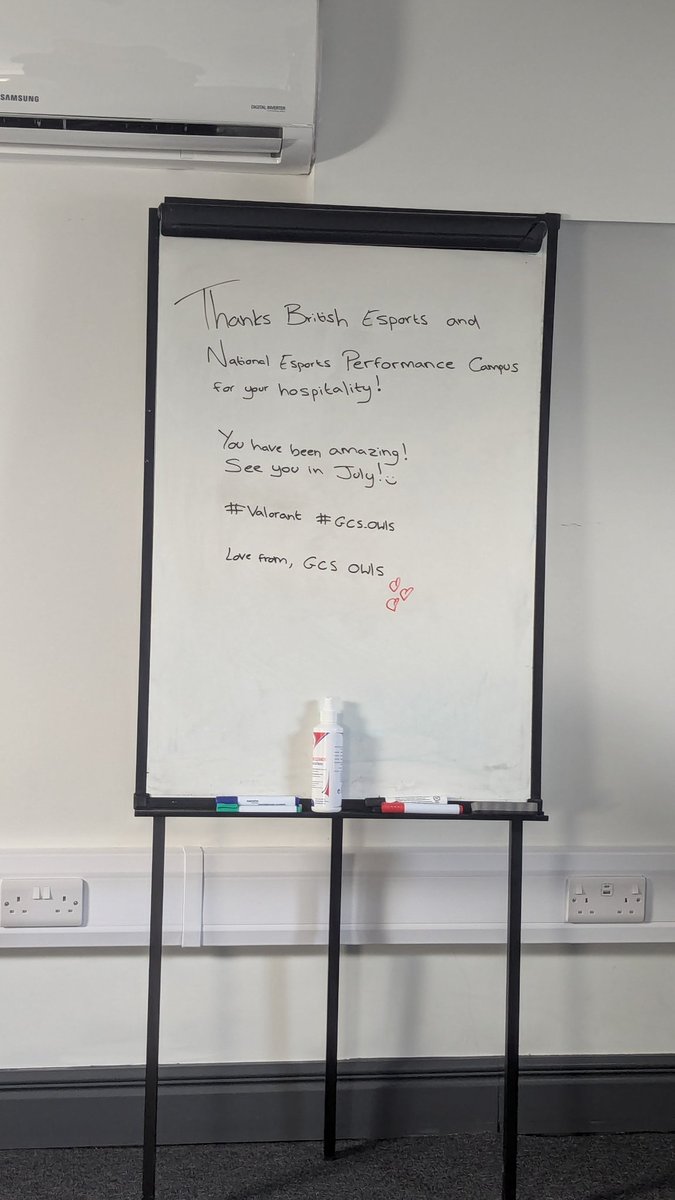 SAMSUNG
DIGITAL INVERTER
Thanks British Esports and
National Esports Performance Campus
for your hospitality!
You have been amazing!
See you in July!
#Valorant #GCS.owls
Love from, GCS OWLS